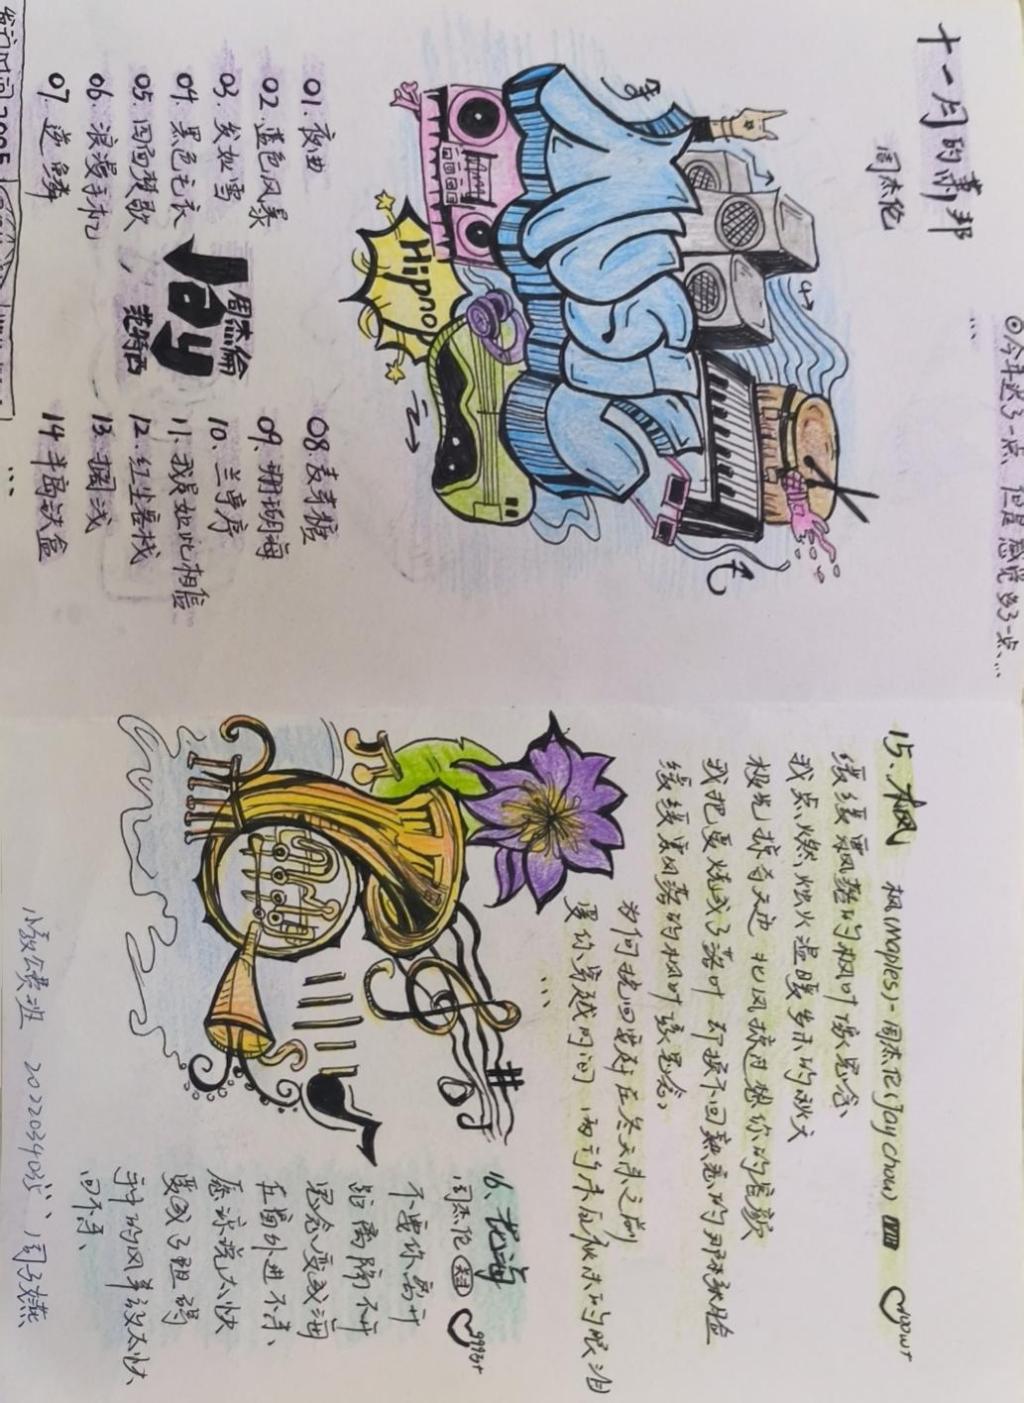 十一月的萧邦
周杰伦
◎今年迟了一点 但是感觉多了一点...
...
Hipnop
01.夜曲
02.蓝色风暴
03.发如雪
04.黑色毛衣
05.四面楚歌
06.浪漫手机
07.逆鳞
周杰倫
Jay
范特西
08.麦芽糖
09.珊瑚海
10.兰亭序
11.我是如此相信
12.红尘客栈
13.搁浅
14.半岛铁盒
...
发行时间 2005
15.枫
枫(Maples)-周杰伦(Jay Chou)
100w+
缓缓飘落的枫叶像思念、
我点燃烛火温暖岁末的秋天
极光掠夺天边 北风掠过想你的容颜
我把爱烧成了落叶 却换不回熟悉的那张脸
缓缓飘落的枫叶像思念,
为何挽回要赶在冬天来之前
爱你穿越时间 两行来自秋末的眼泪
...
16.花海
周杰伦
999w+
不要你离开
距离隔不开
思念变成海
在窗外进不来、
原谅说太快
爱成了阻碍
手中的风筝放太快
回不来、
小教公费班
周子燕